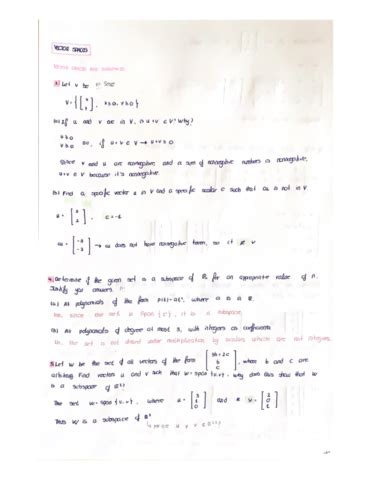 VECTOR SPACES
VECTOR SPACES AND SUBSPACES
1) Let V be
V = { [x y] , x≥0, y≥0 }
(a) If u and v are in V, is u+v in V? Why?
u≥0
v≥0 so, if u+v ∈ V → u+v ≥ 0
Since v and u are nonnegative, and a sum of nonnegative numbers is nonnegative,
u+v ∈ V because it's nonnegative.
(b) Find a specific vector u in V and a specific scalar c such that cu is not in V.
u = [2 2] , c = -1
cu = [-2 -2] → cu does not have nonnegative terms, so it ∉ V
Determine if the given set is a subspace of Pn for an appropriate value of n.
Justify your answers.
(a) All polynomials of the form p(t) = at², where a is in R.
Yes, since our set is Span {t²}, it is a subspace
(b) All polynomials of degree at most 3, with integers as coefficients
No, the set is not closed under multiplication by scalars which are not integers.
Let W be the set of all vectors of the form [5b+2c b c] , where b and c are
arbitrary. Find vectors u and v such that W = span {u,v}. Why does this show that W
is a subspace of R³?
The set W = span {u,v}, where u = [5 1 0] and v = [2 0 1]
Thus W is a subspace of R³